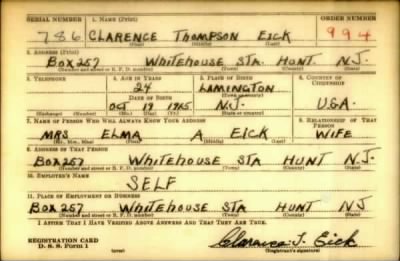 SERIAL NUMBER 1. NAME (Print) ORDER NUMBER
786 CLARENCE THOMPSON EICK 994
(First) (Middle) (Last)
2. ADDRESS (Print)
BOX 257 WHITEHOUSE STA. HUNT. N.J.
(Number and street or R. F. D. number) (Town) (County) (State)
3. TELEPHONE 4. AGE IN YEARS 5. PLACE OF BIRTH 6. COUNTRY OF CITIZENSHIP
24 LAMINGTON
DATE OF BIRTH (Town or county)
OCT 19 N.J. U.S.A.
(Exchange) (Number) (Mo.) (Day) (Yr.) (State or country)
7. NAME OF PERSON WHO WILL ALWAYS KNOW YOUR ADDRESS 8. RELATIONSHIP OF THAT PERSON
MRS ELMA A EICK WIFE
(Mr., Mrs., Miss) (First) (Middle) (Last)
9. ADDRESS OF THAT PERSON
BOX 257 WHITEHOUSE STA HUNT N.J.
(Number and street or R. F. D. number) (Town) (County) (State)
10. EMPLOYER'S NAME
SELF
11. PLACE OF EMPLOYMENT OR BUSINESS
BOX 257 WHITEHOUSE STA HUNT N.J.
(Number and street or R. F. D. number) (Town) (County) (State)
I AFFIRM THAT I HAVE VERIFIED ABOVE ANSWERS AND THAT THEY ARE TRUE.
REGISTRATION CARD
D. S. S. Form 1 (over) Clarence T. Eick
(Registrant's signature)